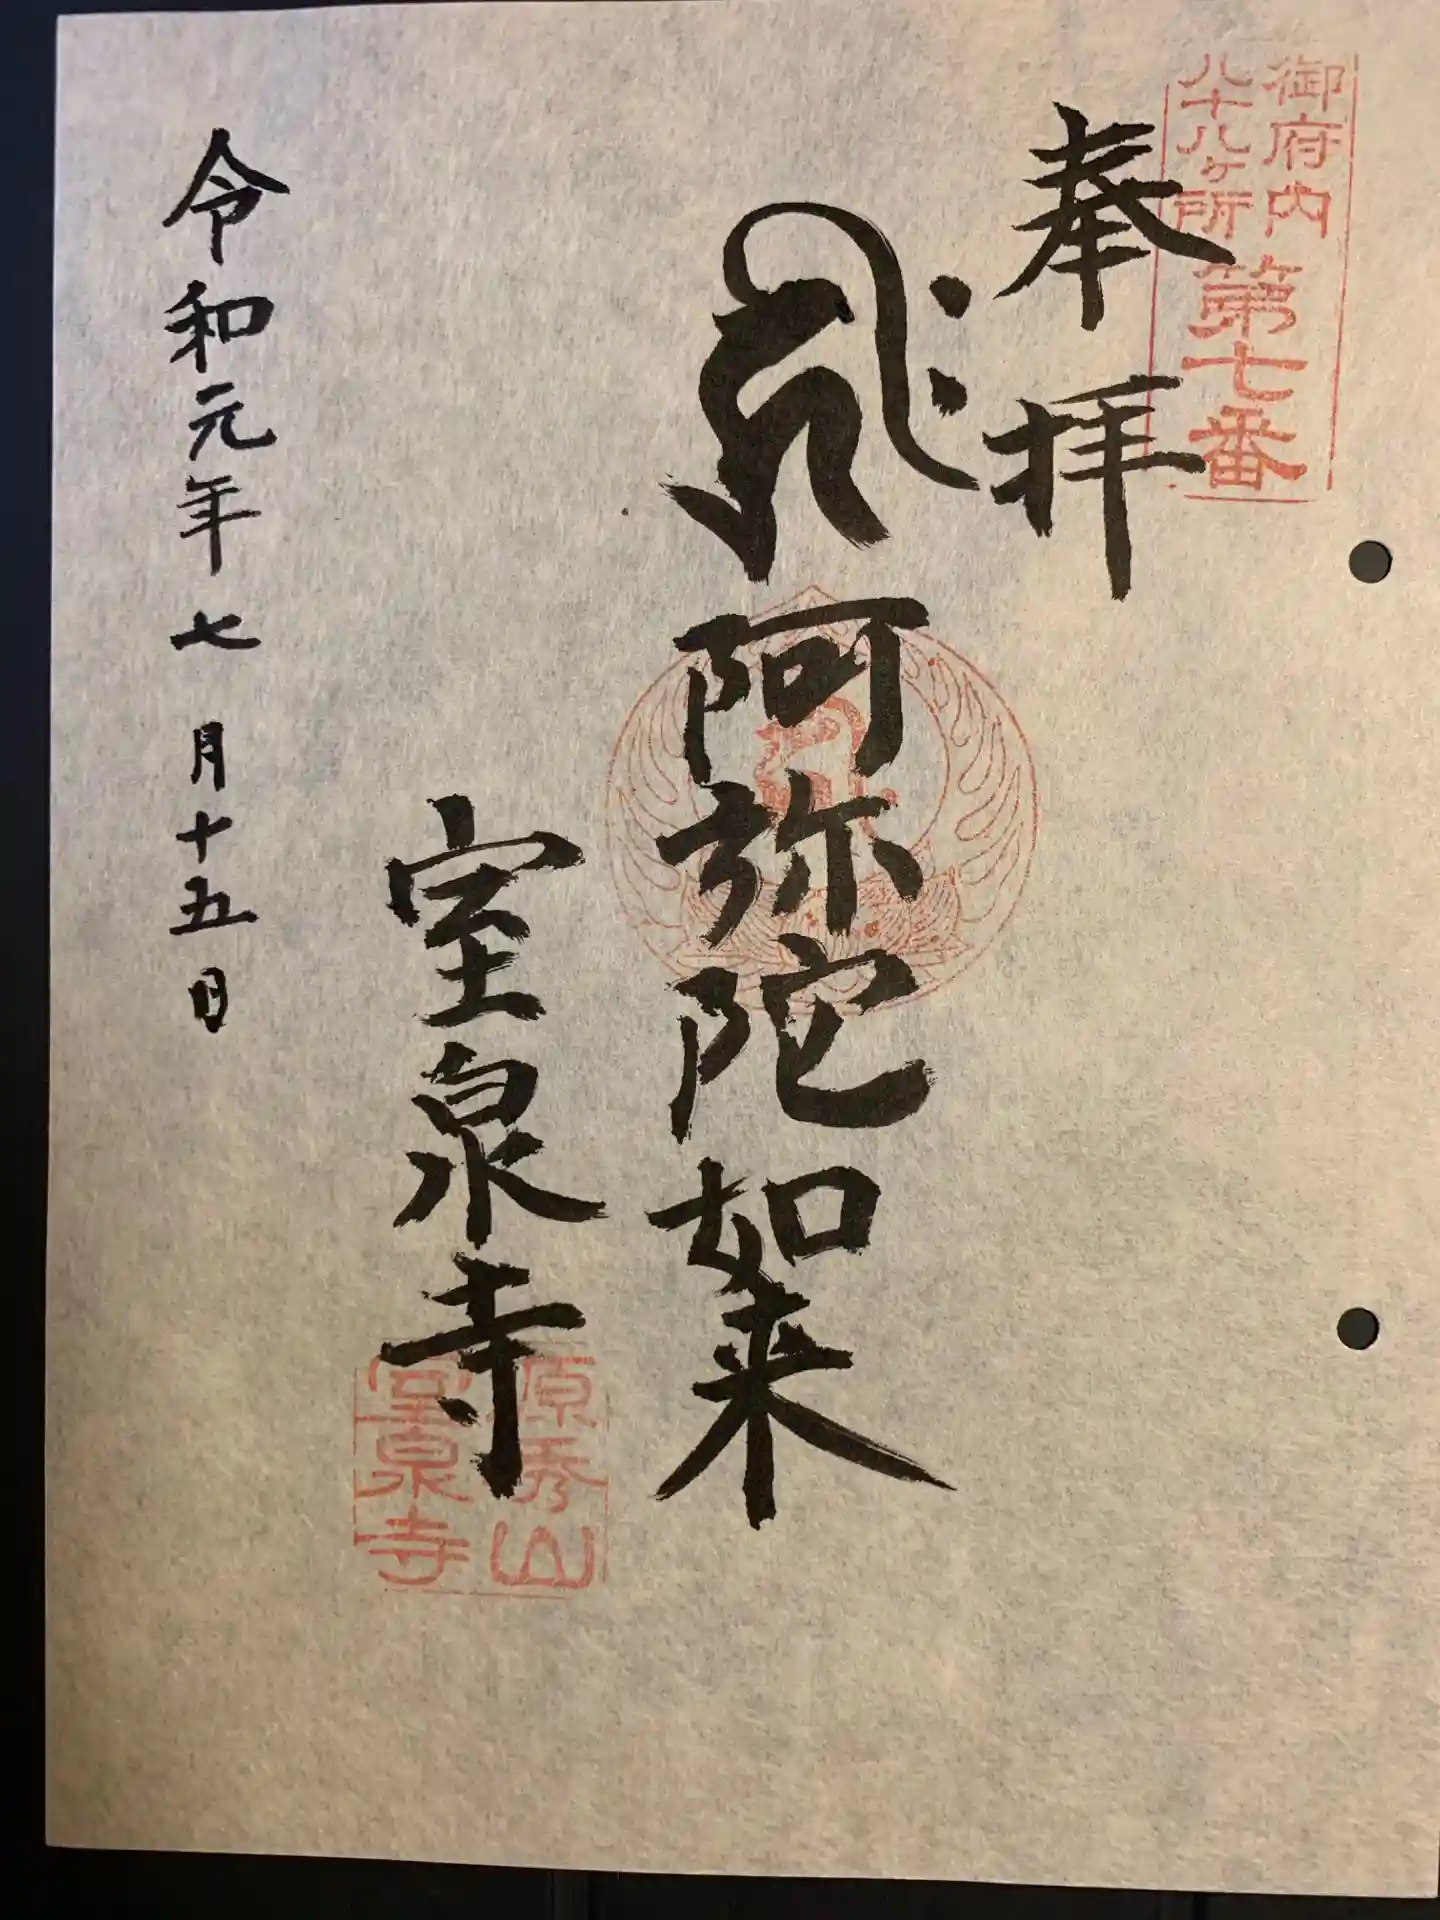 御府内
八十八ケ所
第七番
奉拝
阿弥陀如来
室泉寺
原秀山
室泉寺
令和元年七月十五日